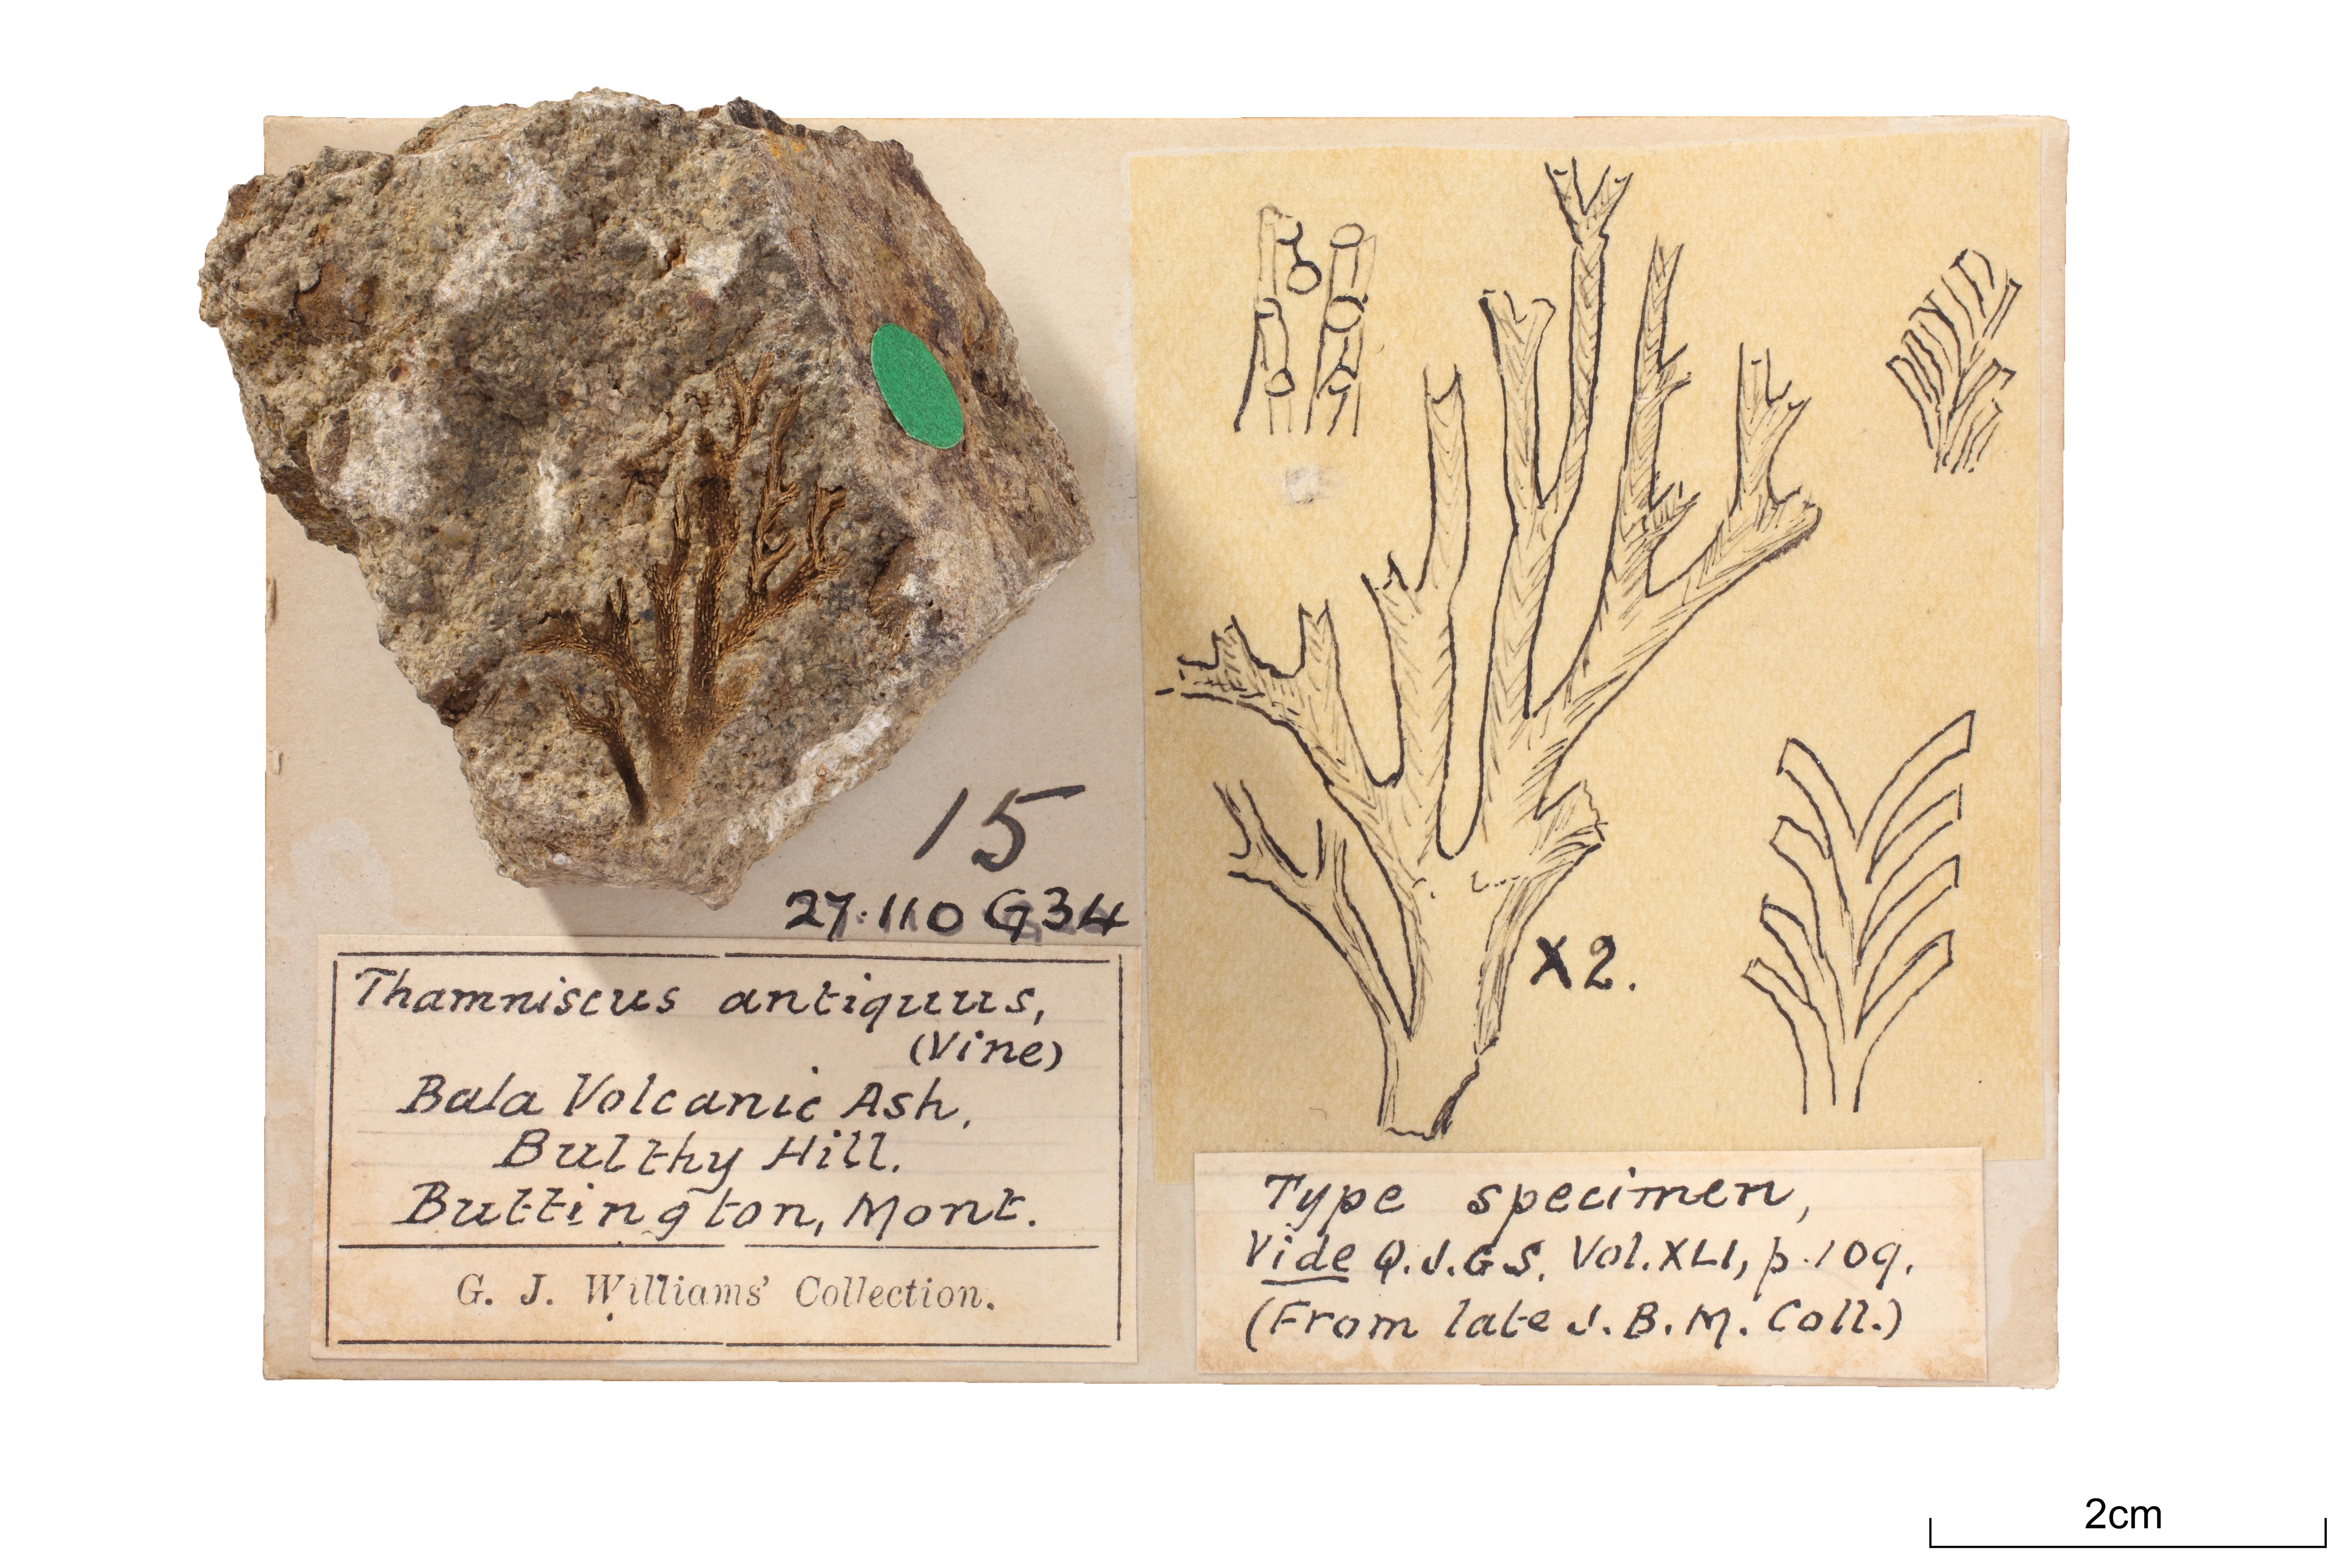 15
27.110 G34
Thamniscus antiquus,
(Vine)
Bala Volcanic Ash,
Bulthy Hill.
Buttington, Mont.
G. J. Williams' Collection.
X2.
Type specimen,
Vide Q.J.G.S. Vol. XLI, p. 109.
(From late J. B. M. Coll.)
2cm